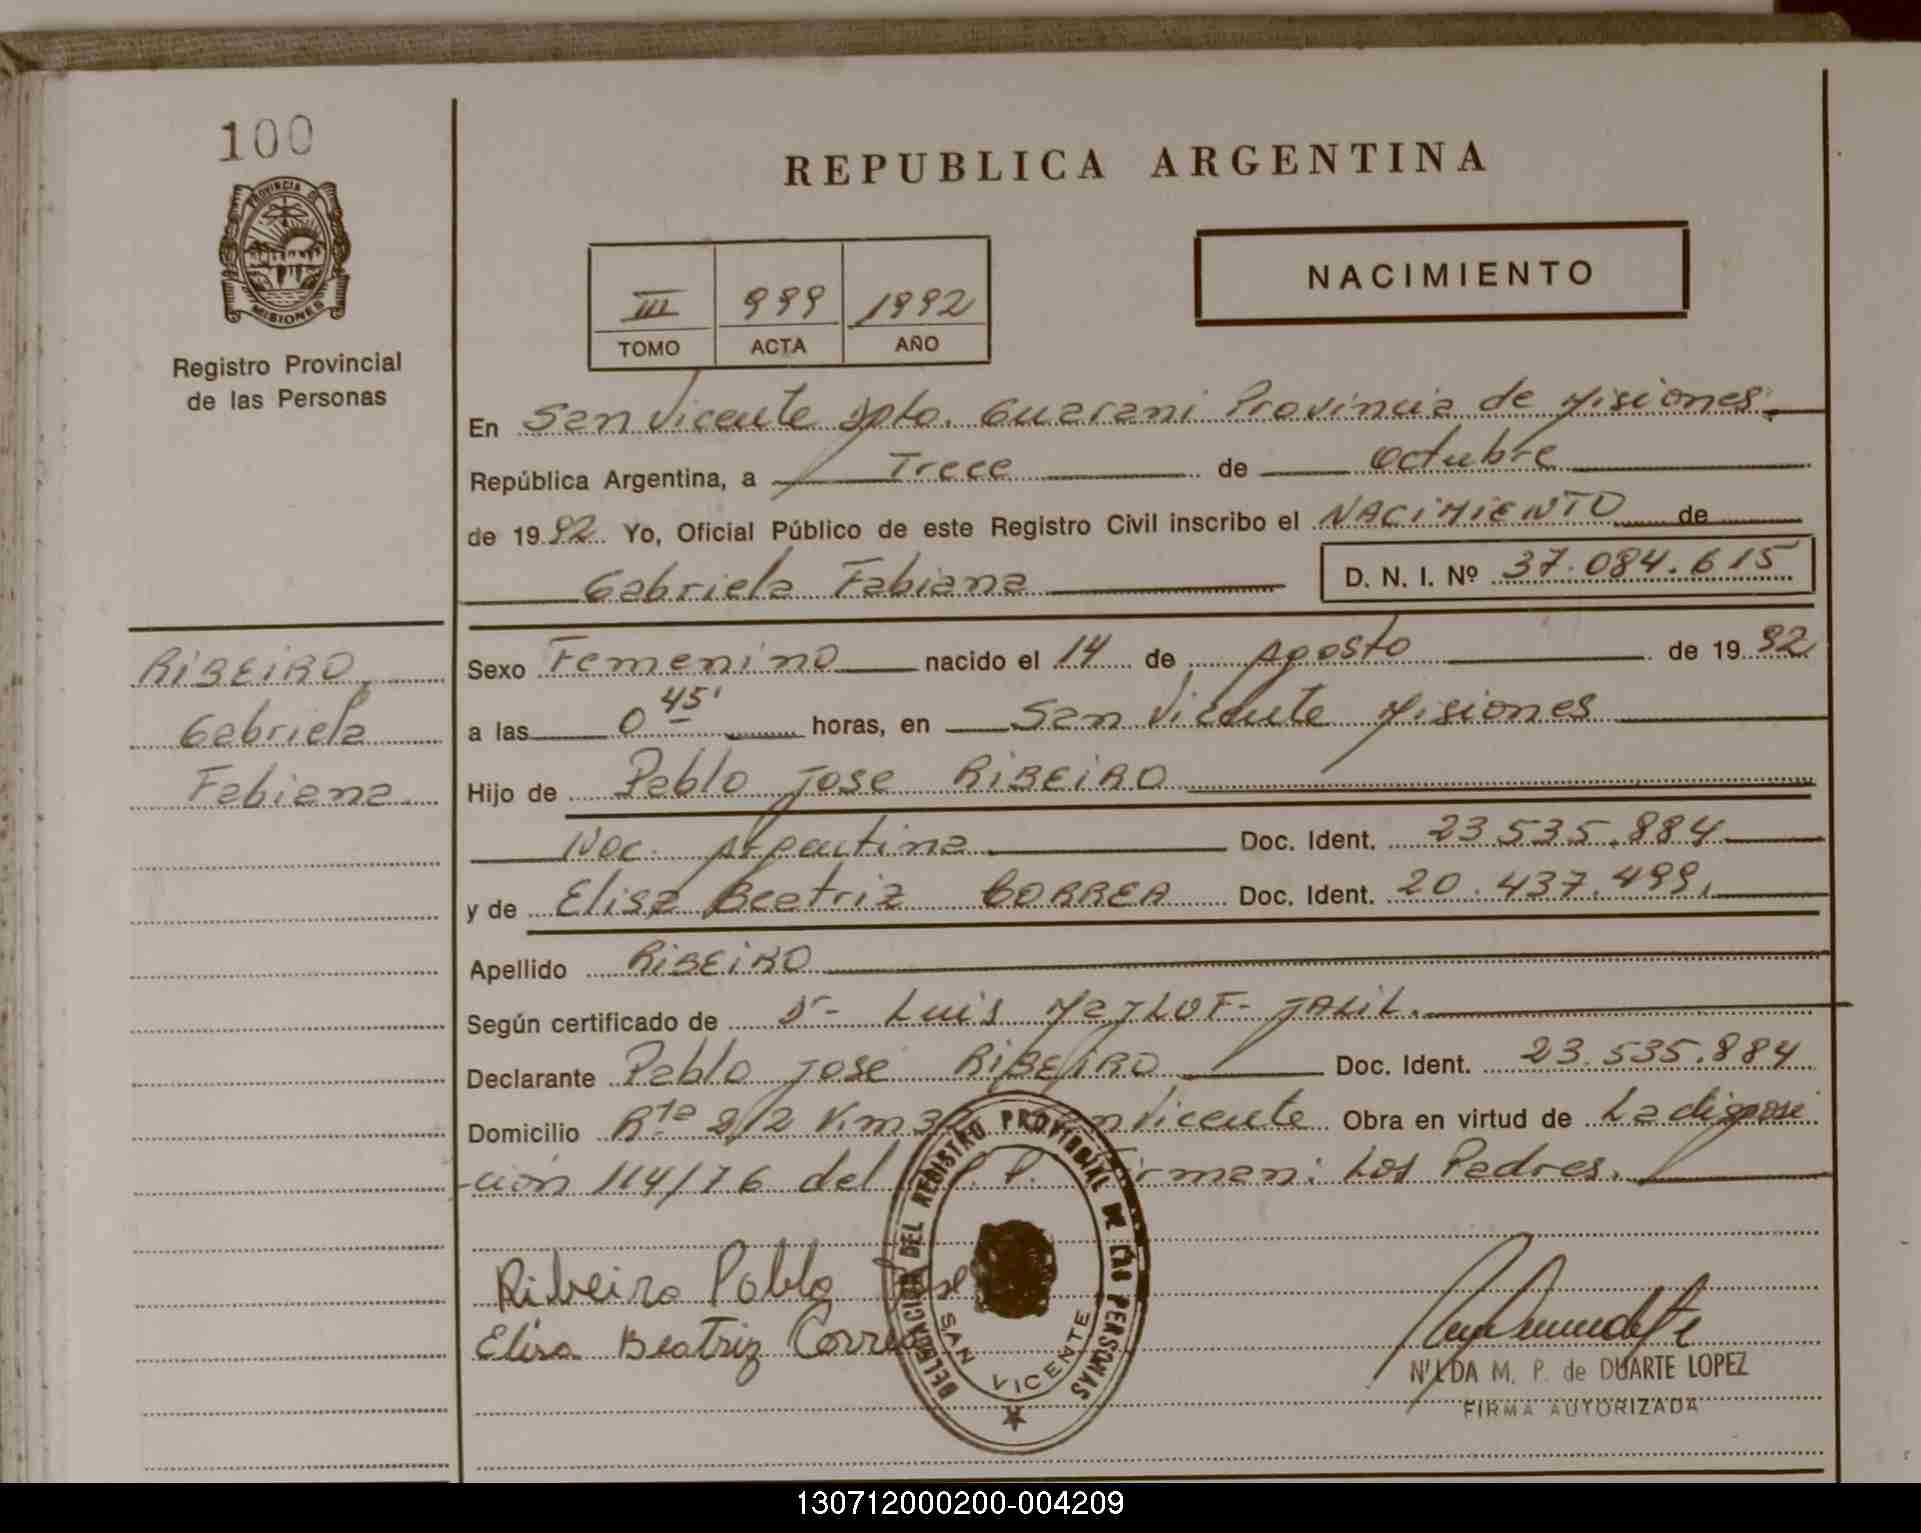 100
PROVINCIA DE
MISIONES
Registro Provincial
de las Personas
RIBEIRO
Gabriela
Fabiana
REPUBLICA ARGENTINA
III 999 1992
TOMO ACTA AÑO
NACIMIENTO
En San Vicente Dpto. Guarani Provincia de Misiones
República Argentina, a Trece de Octubre
de 1992 Yo, Oficial Público de este Registro Civil inscribo el NACIMIENTO de
Gabriela Fabiana D. N. I. Nº 37.084.615
Sexo Femenino nacido el 14 de Agosto de 1992
a las 0 45' horas, en San Vicente Misiones
Hijo de Pablo Jose RIBEIRO
Nac. Argentina Doc. Ident. 23.535.884
y de Elisa Beatriz CORREA Doc. Ident. 20.437.499.
Apellido RIBEIRO
Según certificado de Dr- Luis
Declarante Pablo Jose RIBEIRO Doc. Ident. 23.535.884
Domicilio Rta 212 Km 32 San Vicente Obra en virtud de La disposi
ción 114/76 del R.P.P. Firman: Los Padres.
Ribeiro Pablo Jose
Elisa Beatriz Correa
DELEGACION DEL REGISTRO PROVINCIAL DE LAS PERSONAS
SAN VICENTE
NILDA M. P. de DUARTE LOPEZ
FIRMA AUTORIZADA
130712000200-004209